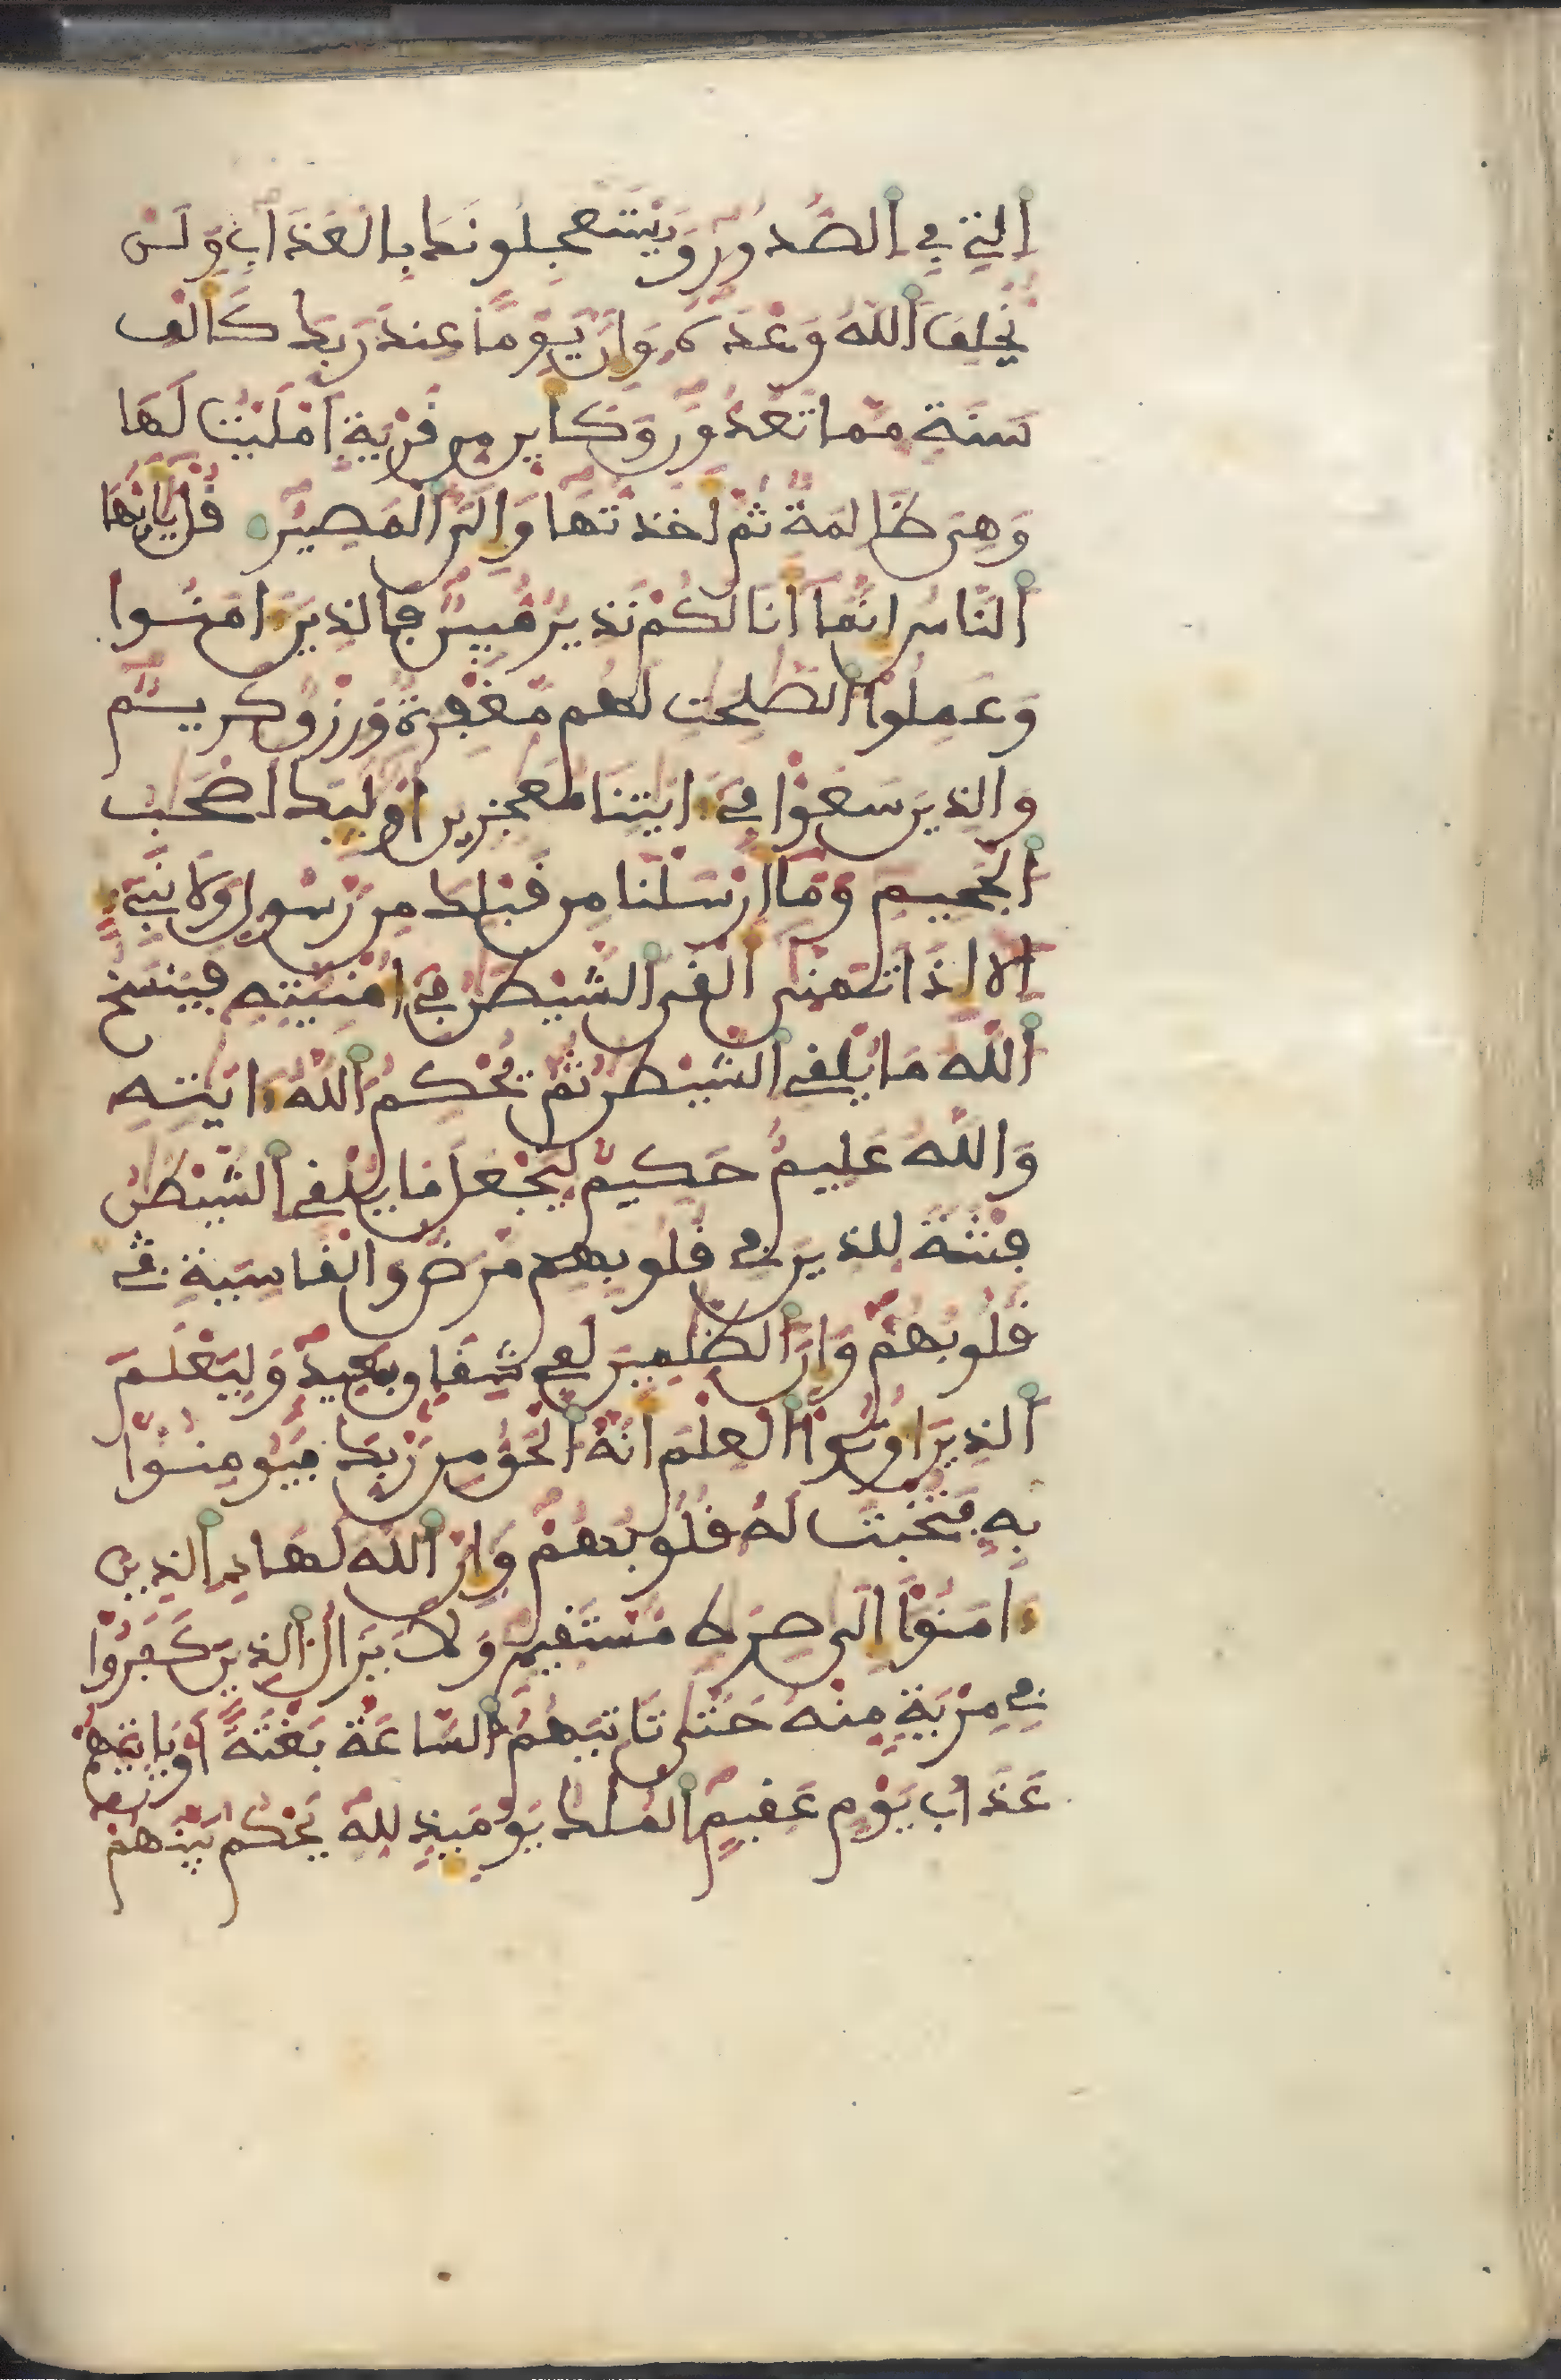 اَ۬لتِے فِے اِ۬لصُّدُورِ وَيَسْتَعْجِلُونَكَ بِالْعَذَابِ وَلَنْ
يُّخْلِفَ اَ۬للَّهُ وَعْدَهُۥ وَإِنَّ يَوْماً عِندَ رَبِّكَ كَأَلْفِ
سَنَةٖ مِّمَّا تَعُدُّونَ وَكَأَيِّن مِّن قَرْيَةٍ اَمْلَيْتُ لَهَا
وَهِىَ ظَٰلِمَةٞ ثُمَّ أَخَذتُّهَا وَإِلَىَّ اَ۬لْمَصِيرُ قُلْ يَٰأَيُّهَا
اَ۬لنَّاسُ إِنَّمَا أَنَا لَكُمْ نَذِيرٞ مُّبِينٞ فَالذِينَ ءَامَنُوا
وَعَمِلُوا اُ۬لصَّٰلِحَٰتِ لَهُم مَّغْفِرَةٞ وَرِزْقٞ كَرِيمٞ
وَالذِينَ سَعَوْا فِے ءَايَٰتِنَا مُعَٰجِزِينَ أُوْلَٰئِكَ أَصْحَٰبُ
اُ۬لْجَحِيمِ وَمَا أَرْسَلْنَا مِن قَبْلِكَ مِن رَّسُولٖ وَلَا نَبِےٓءٍ
اِلَّا إِذَا تَمَنَّىٰ أَلْقَى اَ۬لشَّيْطَٰنُ فِے أُمْنِيَّتِهِۦ فَيَنسَخُ
اُ۬للَّهُ مَا يُلْقِے اِ۬لشَّيْطَٰنُ ثُمَّ يُحْكِمُ اُ۬للَّهُ ءَايَٰتِهِۦ
وَاللَّهُ عَلِيمٌ حَكِيمٞ لِّيَجْعَلَ مَا يُلْقِے اِ۬لشَّيْطَٰنُ
فِتْنَةٗ لِّلذِينَ فِے قُلُوبِهِم مَّرَضٞ وَالْقَاسِيَةِ
قُلُوبُهُمْ وَإِنَّ اَ۬لظَّٰلِمِينَ لَفِے شِقَاقٍ بَعِيدٖ وَلِيَعْلَمَ
اَ۬لذِينَ أُوتُوا اُ۬لْعِلْمَ أَنَّهُ اُ۬لْحَقُّ مِن رَّبِّكَ فَيُومِنُوا
بِهِۦ فَتُخْبِتَ لَهُۥ قُلُوبُهُمْ وَإِنَّ اَ۬للَّهَ لَهَادِ اِ۬لذِينَ
ءَامَنُوا إِلَىٰ صِرَٰطٖ مُّسْتَقِيمٖ وَلَا يَزَالُ اُ۬لذِينَ كَفَرُوا
فِے مِرْيَةٖ مِّنْهُ حَتَّىٰ تَاتِيَهُمُ اُ۬لسَّاعَةُ بَغْتَةً اَوْ يَاتِيَهُمْ
عَذَابُ يَوْمٍ عَقِيمٍ اِ۬لْمُلْكُ يَوْمَئِذٖ لِّلهِ يَحْكُمُ بَيْنَهُمْ